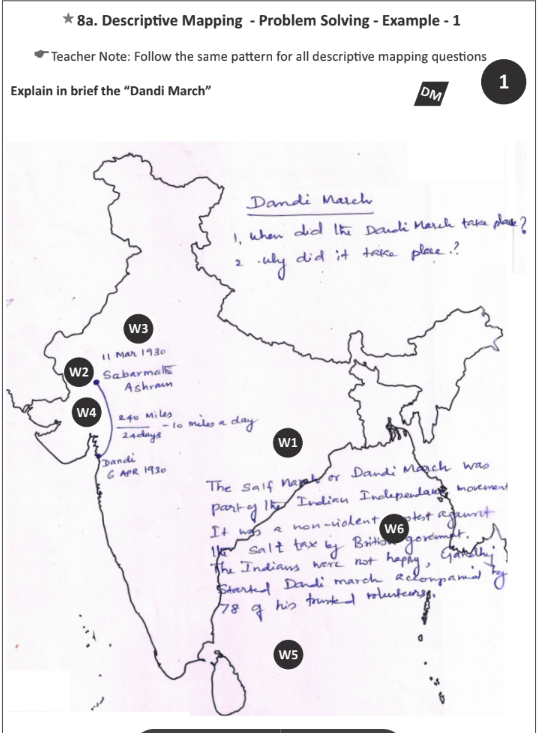 ★ 8a. Descriptive Mapping - Problem Solving - Example - 1
Teacher Note: Follow the same pattern for all descriptive mapping questions
Explain in brief the “Dandi March”
DM
1
Dandi March
1. when did the Dandi March take place?
2. why did it take place.?
W3
11 Mar 1930
W2
Sabarmathi
Ashram
W4
240 Miles
24 days
- 10 miles a day
Dandi
6 APR 1930
W1
The Salt March or Dandi March was
part of the Indian Independance movement
It was a non-violent against
W6
the salt tax by British
The Indians were not happy, Gandhiji
started Dandi march accompanied by
78 of his trusted volunteers.
W5